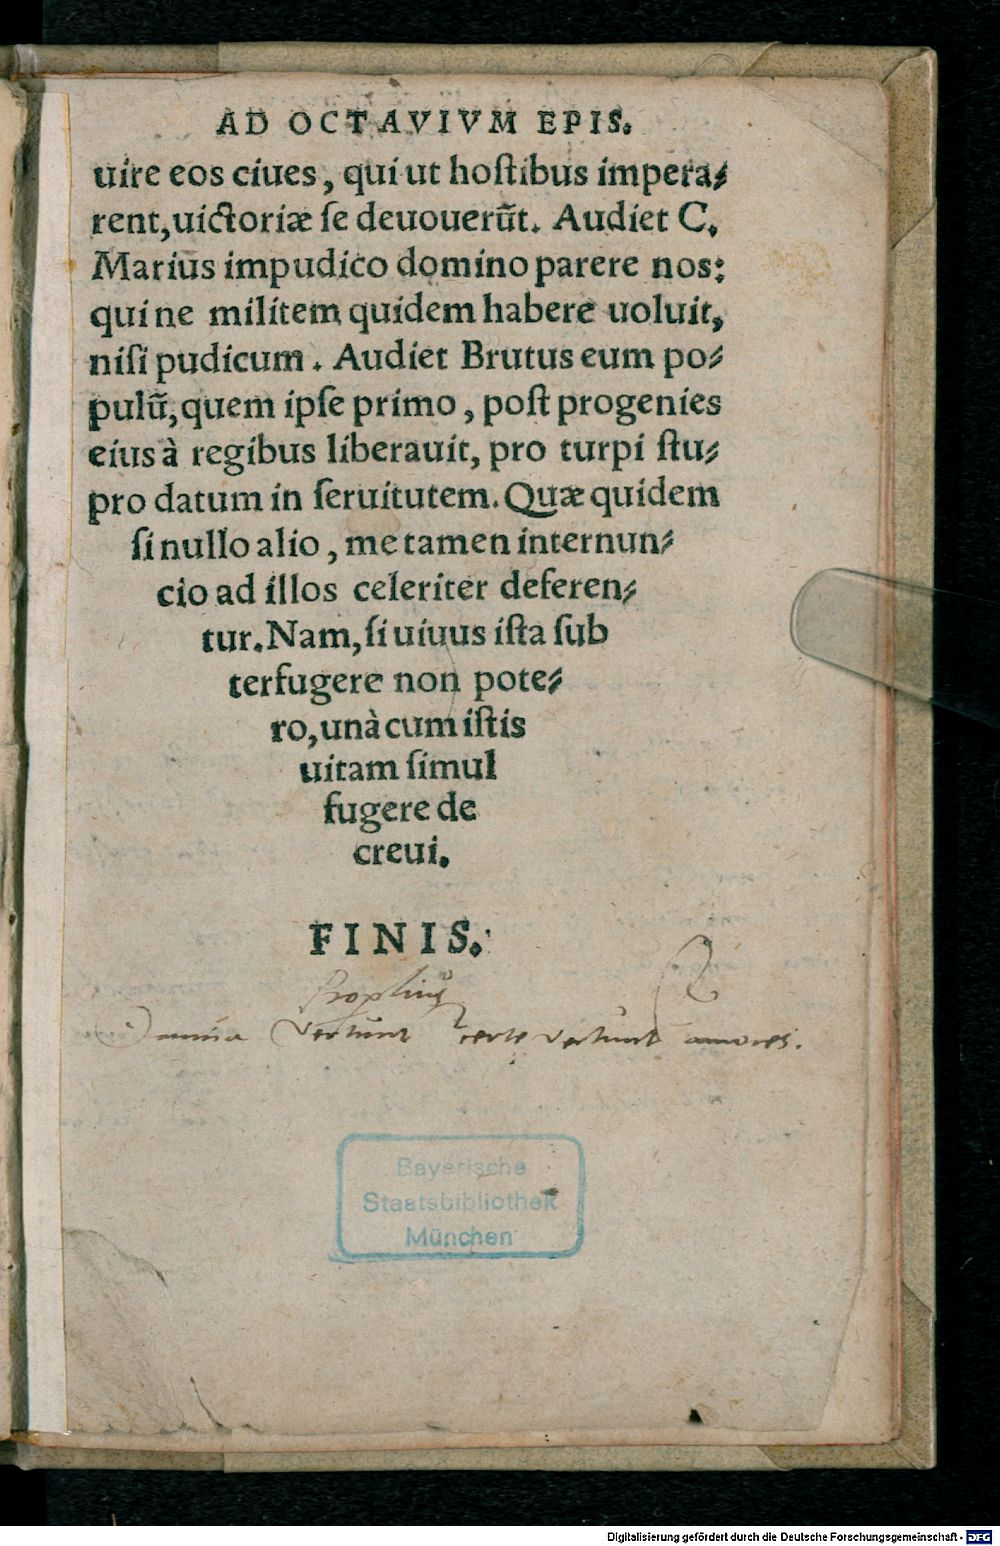 AD OCTAVIVM EPIS.
uire eos ciues, qui ut hoſtibus impera⸗
rent, uictoriæ ſe deuouerūt. Audiet C.
Marius impudico domino parere nos:
qui ne militem quidem habere uoluit,
niſi pudicum. Audiet Brutus eum po⸗
pulū, quem ipſe primo, poſt progenies
eius à regibus liberauit, pro turpi ſtu⸗
pro datum in ſeruitutem. Quæ quidem
ſi nullo alio, me tamen internun⸗
cio ad illos celeriter deferen⸗
tur. Nam, ſi uiuus iſta ſub
terfugere non pote⸗
ro, unà cum iſtis
uitam ſimul
fugere de
creui.
FINIS.
Omnia vertunt certe vertunt amores.
Bayerische
Staatsbibliothek
München
Digitalisierung gefördert durch die Deutsche Forschungsgemeinschaft - DFG